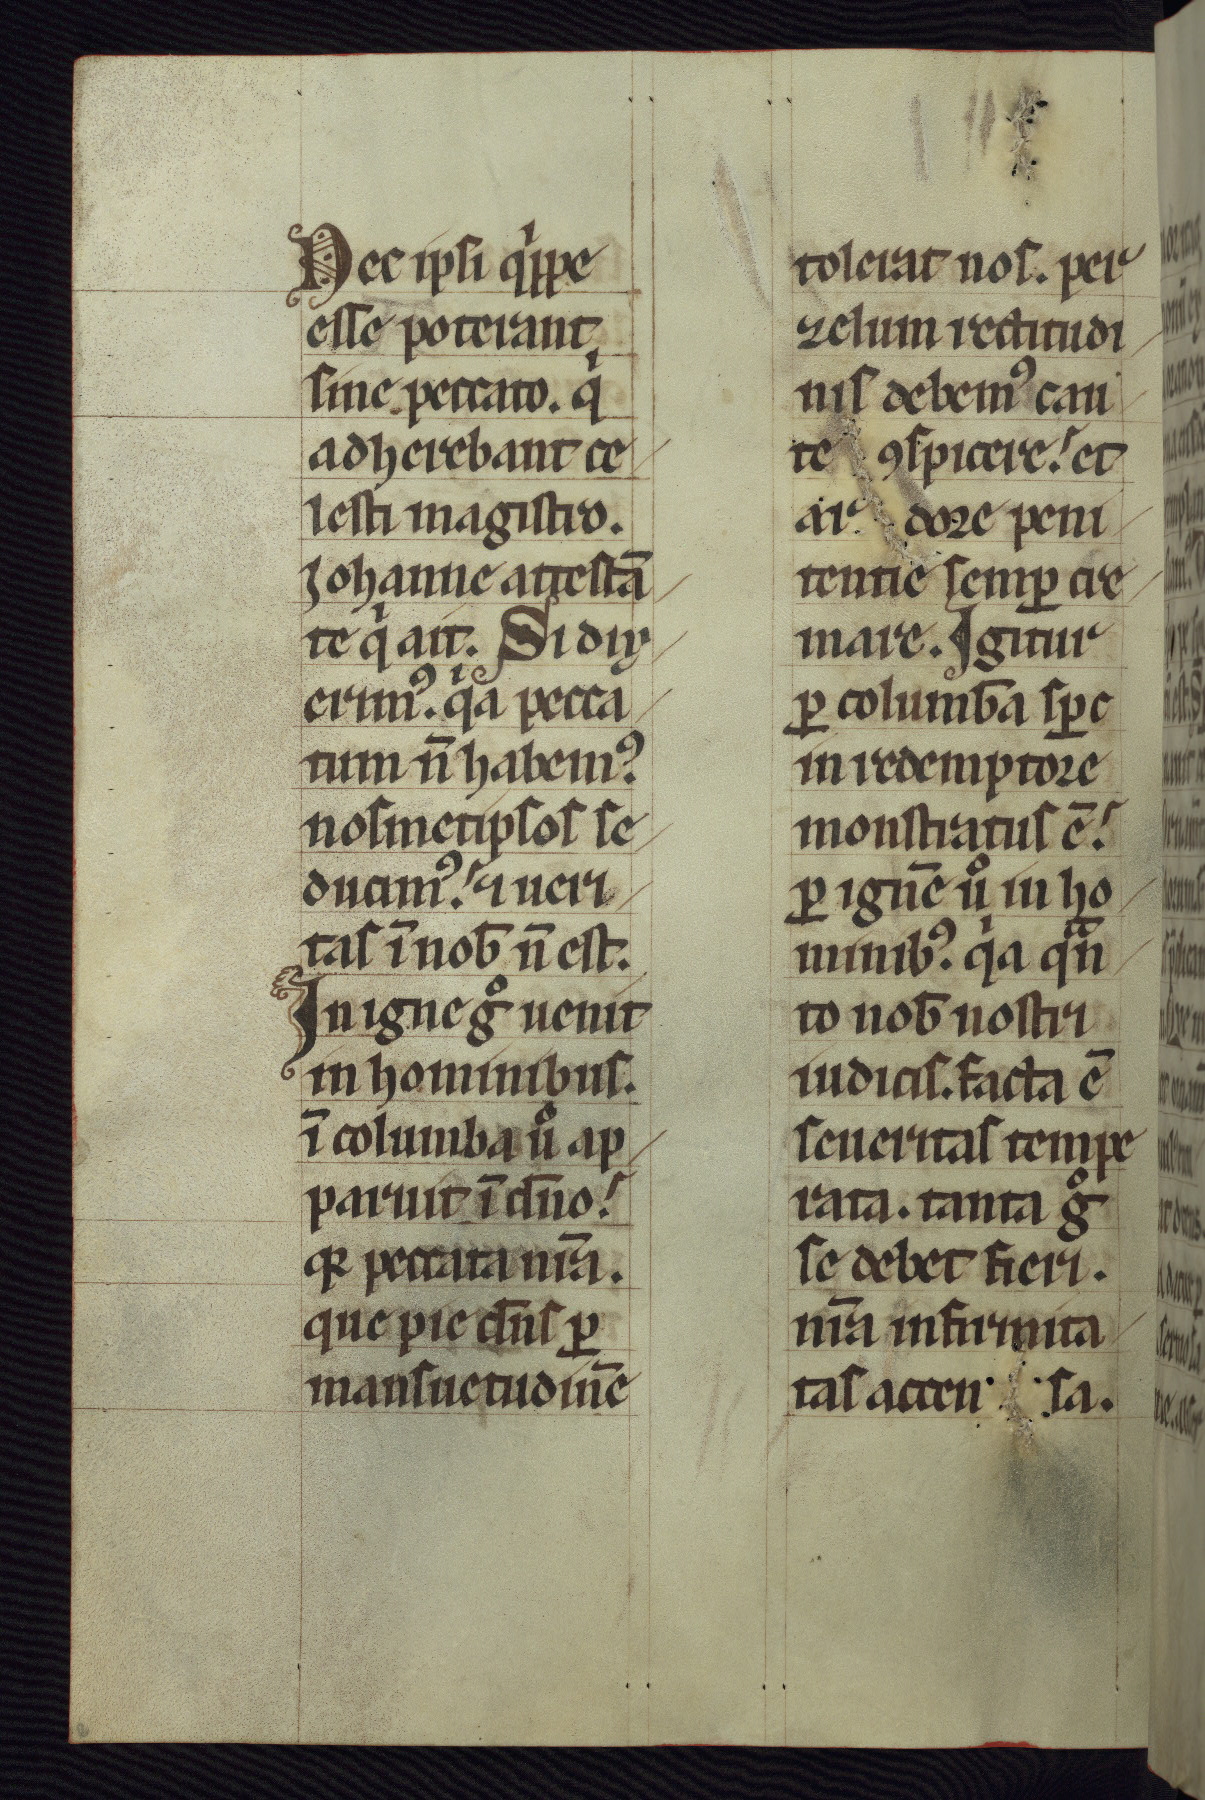 Nec ipsi qͥppe
esse poterant
sine peccato. qͥ
adherebant ce
lesti magistro.
Johanne attestā
te qͥ ait. Si dix
erimꝰ. qͥa pecca
tum n̄ habemꝰ
nosmetipsos se
ducimꝰ! ⁊ ueri
tas ī nob̄ n̄ est.
In igne gͦ uenit
in hominibus.
ī columba uͦ ap
paruit ī dn̄o!
qꝛ peccata nr̄a.
que pie dn̄s ꝑ
mansuetudinē
tolerat nos. per
zelum rectitudi
nis debemꝰ cau
te ꝯspicere! et
ardore peni
tentie semꝑ cre
mare. Igitur
ꝑ columb̄a sp̄c
in redemptore
monstratus ē!
ꝑ ignē uͦ in ho
minibꝰ. qͥa qᷓn
to nob̄ nostri
iudicis. facta ē
seueritas tempe
rata. tanta gͦ
se debet fieri.
nr̄a infirmita
tas accensa.